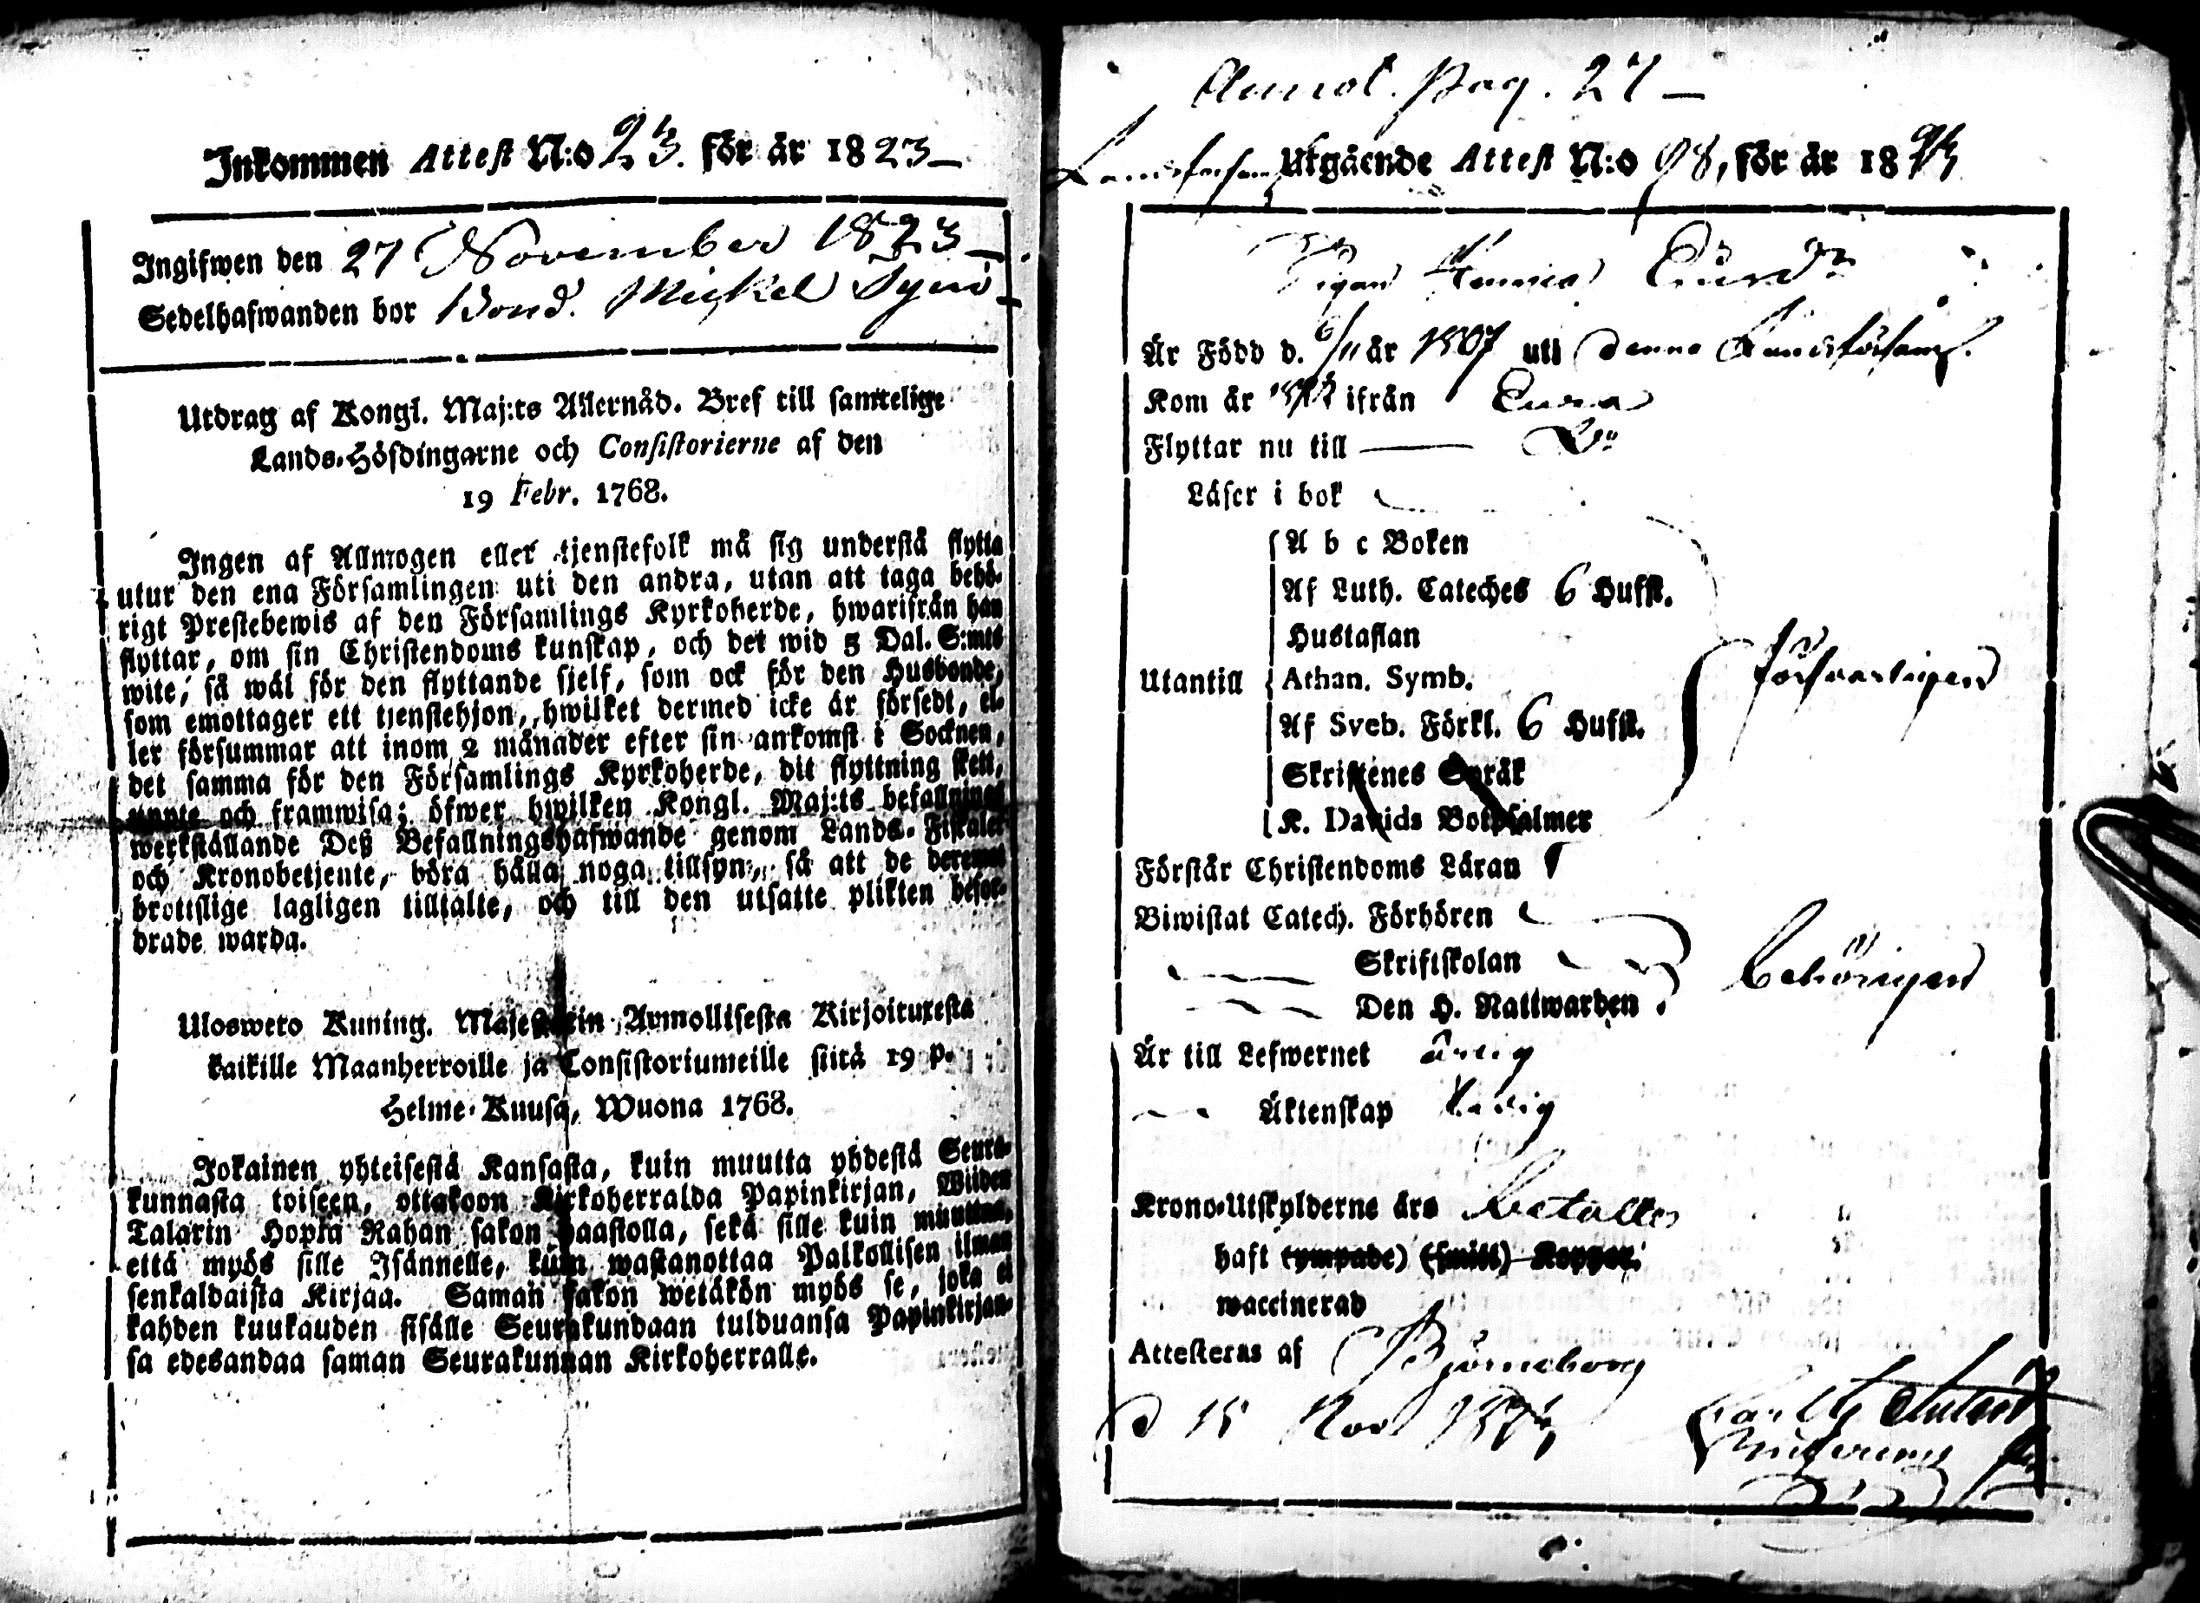 Inkommen Attest N:o 23. för år 1823
Ingifwen den 27 November 1823
Sedelhafwanden bor Bond. Mickel
Utdrag af Kongl. Maj:ts Allernåd. Bref till samtelige
Lands-Höfdingarne och Consistorierne af den
19 Febr. 1768.
Ingen af Allmogen eller tjenstefolk må sig understå flytta
utur den ena Församlingen uti den andra, utan att taga behö-
rigt Prestebewis af den Församlings Kyrkoherde, hwarifrån han
flyttar, om sin Christendoms kunskap, och det wid 5 Dal. S:mts
wite, så wäl för den flyttande sjelf, som ock för den Husbonde,
som emottager ett tjenstehjon, hwilket dermed icke är försedt, el-
ler försummar att inom 2 månader efter sin ankomst i Socknen,
det samma för den Församlings Kyrkoherde, dit flyttning skett,
upte och framwisa; öfwer hwilken Kongl. Maj:ts befallnings
werkställande Deß Befallningshafwande genom Lands-Fiskaler
och Kronobetjente, böra hålla noga tillsyn, så att de deremot
brottslige lagligen tilltalte, och till den utsatte plikten befor-
drade warda.
Ulosweto Kuning. Majestetin Armollisesta Kirjoituxesta
kaikille Maanherroille ja Consistoriumeille siitä 19 p.
Helme-Kuusa, Wuona 1768.
Jokainen yhteisestä Kansasta, kuin muutta yhdestä Seura-
kunnasta toiseen, ottakoon Kirkoherralda Papinkirjan, Wiiden
Talarin Hopia Rahan sakon haastolla, sekä sille kuin muuttaa,
että myös sille Isännelle, kuin wastanottaa Palkollisen ilman
senkaldaista Kirjaa. Saman sakon wetäkön myös se, joka ei
kahden kuukauden sisälle Seurakundaan tulduansa Papinkirjan-
sa edesandaa saman Seurakunnan Kirkoherralle.
Annot. Pag. 27
Utgående Attest N:o 98, för år 1823
Pigan
Är Född d. 6/11 år 1807 uti denna Landsförsaml.
Kom år ifrån Eura
Flyttar nu till
Läser i bok
A b c Boken
Af Luth. Cateches 6 Hufst.
Hustaflan
Utantill Athan. Symb. försvarligen
Af Sveb. Förkl. 6 Hufst.
Skriftenes Språk
K. Davids Botpsalmer
Förstår Christendoms Läran
Biwistat Catech. Förhören
Skriftskolan behörigen
Den H. Nattwarden
Är till Lefwernet ärlig
Äktenskap ledig
Krono-Utskylderne äro betalte
haft (ympade) (smitt) Koppor.
waccinerad
Attesteras af Björneborg
d 15 Nov 1823